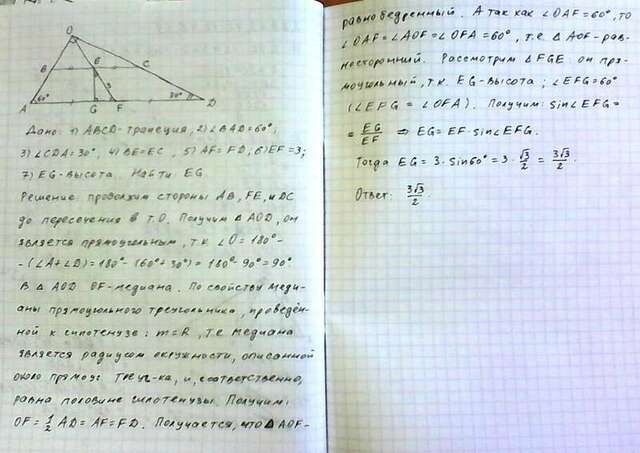 O
B E C
3
A 60° G F 30° D
Дано: 1) ABCD-трапеция, 2) ∠BAD=60°;
3) ∠CDA=30°, 4) BE=EC, 5) AF=FD, 6) EF=3;
7) EG-высота. Найти EG.
Решение: продолжим стороны AB, FE, и DC
до пересечения в т.O. Получим △AOD, он
является прямоугольным, т.к ∠O=180°-
-(∠A+∠D)=180°-(60°+30°)=180°-90°=90°.
В △AOD OF-медиана. По свойству меди-
аны прямоугольного треугольника, проведён-
ной к гипотенузе: m=R, т.е медиана
является радиусом окружности, описанной
около прямоуг треуг-ка, и, соответственно,
равна половине гипотенузы. Получим:
OF=1/2 AD=AF=FD. Получается, что △AOF-
равнобедренный. А так как ∠OAF=60°, то
∠OAF=∠AOF=∠OFA=60°, т.е △AOF-рав-
носторонний. Рассмотрим △FGE он пря-
моугольный, т.к. EG-высота; ∠EFG=60°
(∠EFG=∠OFA). Получим: sin∠EFG=
=EG/EF ⇒ EG=EF·sin∠EFG.
Тогда EG=3·sin60°=3·√3/2=3√3/2
Ответ: 3√3/2.